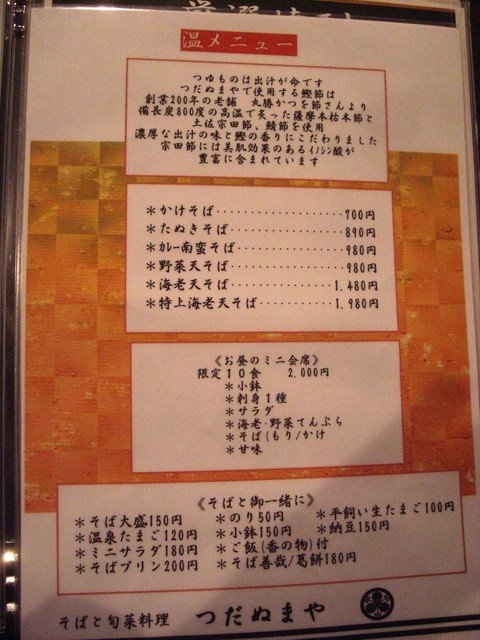 温メニュー
つゆものは出汁が命です
つだぬまやで使用する鰹節は
創業200年の老舗 丸勝かつを節さんより
備長炭800度の高温で炙った薩摩本枯本節と
土佐宗田節、鯖節を使用
濃厚な出汁の味と鰹の香りにこだわりました
宗田節には美肌効果のあるイノシン酸が
豊富に含まれています
＊かけそば・・・・・・・・・・・・・・・・・・700円
＊たぬきそば・・・・・・・・・・・・・・・・890円
＊カレー南蛮そば・・・・・・・・・・・・・・・980円
＊野菜天そば・・・・・・・・・・・・・・・・980円
＊海老天そば・・・・・・・・・・・・・・1,480円
＊特上海老天そば・・・・・・・・・・1,980円
《お昼のミニ会席》
限定10食 2,000円
＊小鉢
＊刺身1種
＊サラダ
＊海老・野菜てんぷら
＊そば(もり/かけ
＊甘味
《そばと御一緒に》
＊そば大盛150円 ＊のり50円 ＊平飼い生たまご100円
＊温泉たまご120円 ＊小鉢150円 ＊納豆150円
＊ミニサラダ180円 ＊ご飯(香の物)付
＊そばプリン200円 ＊そば善哉/葛餅180円
そばと旬菜料理 つだぬまや